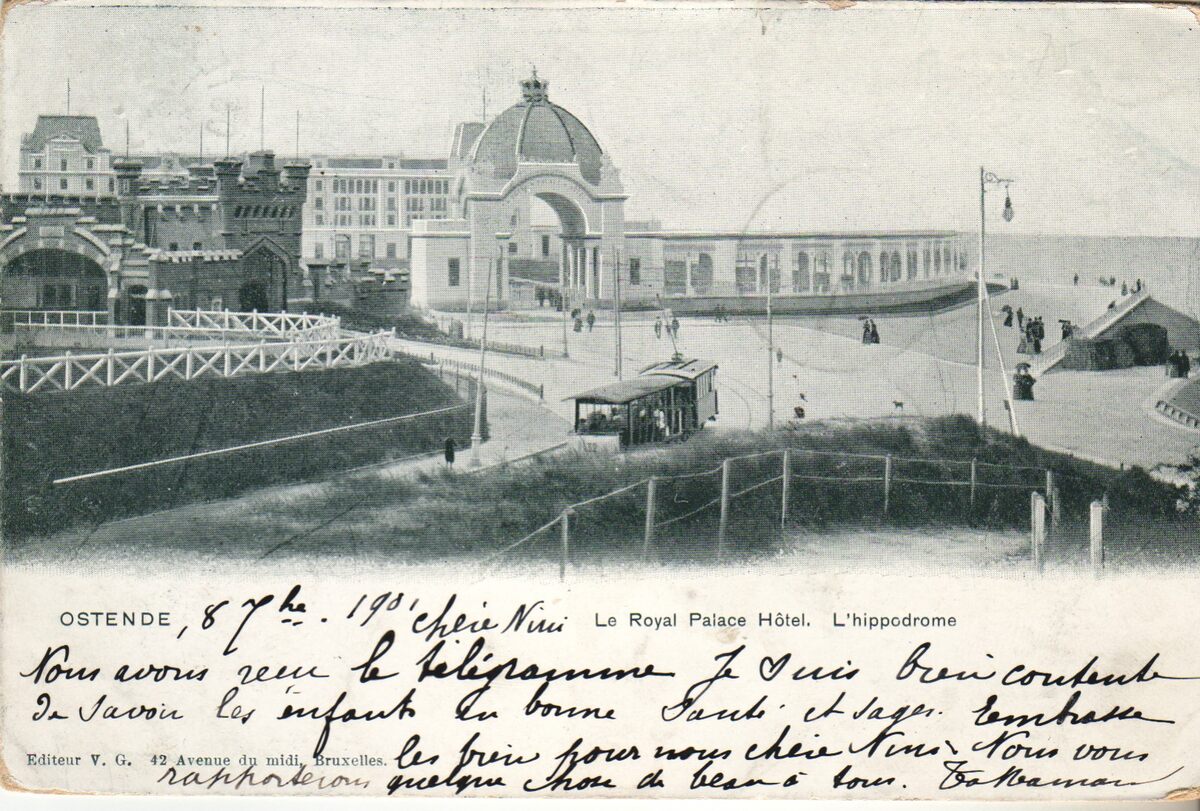 OSTENDE, 8 7bre. 1901 chère Nini Le Royal Palace Hôtel. L'hippodrome
Nous avons recu le télégramme Je suis bien contente
de savoir les enfants en bonne santé et sages. Embrasse
les bien pour nous chère Nini. Nous vous
Editeur V. G. 42 Avenue du midi, Bruxelles.
rapporterons quelque chose de beau à tous. Ta Maman